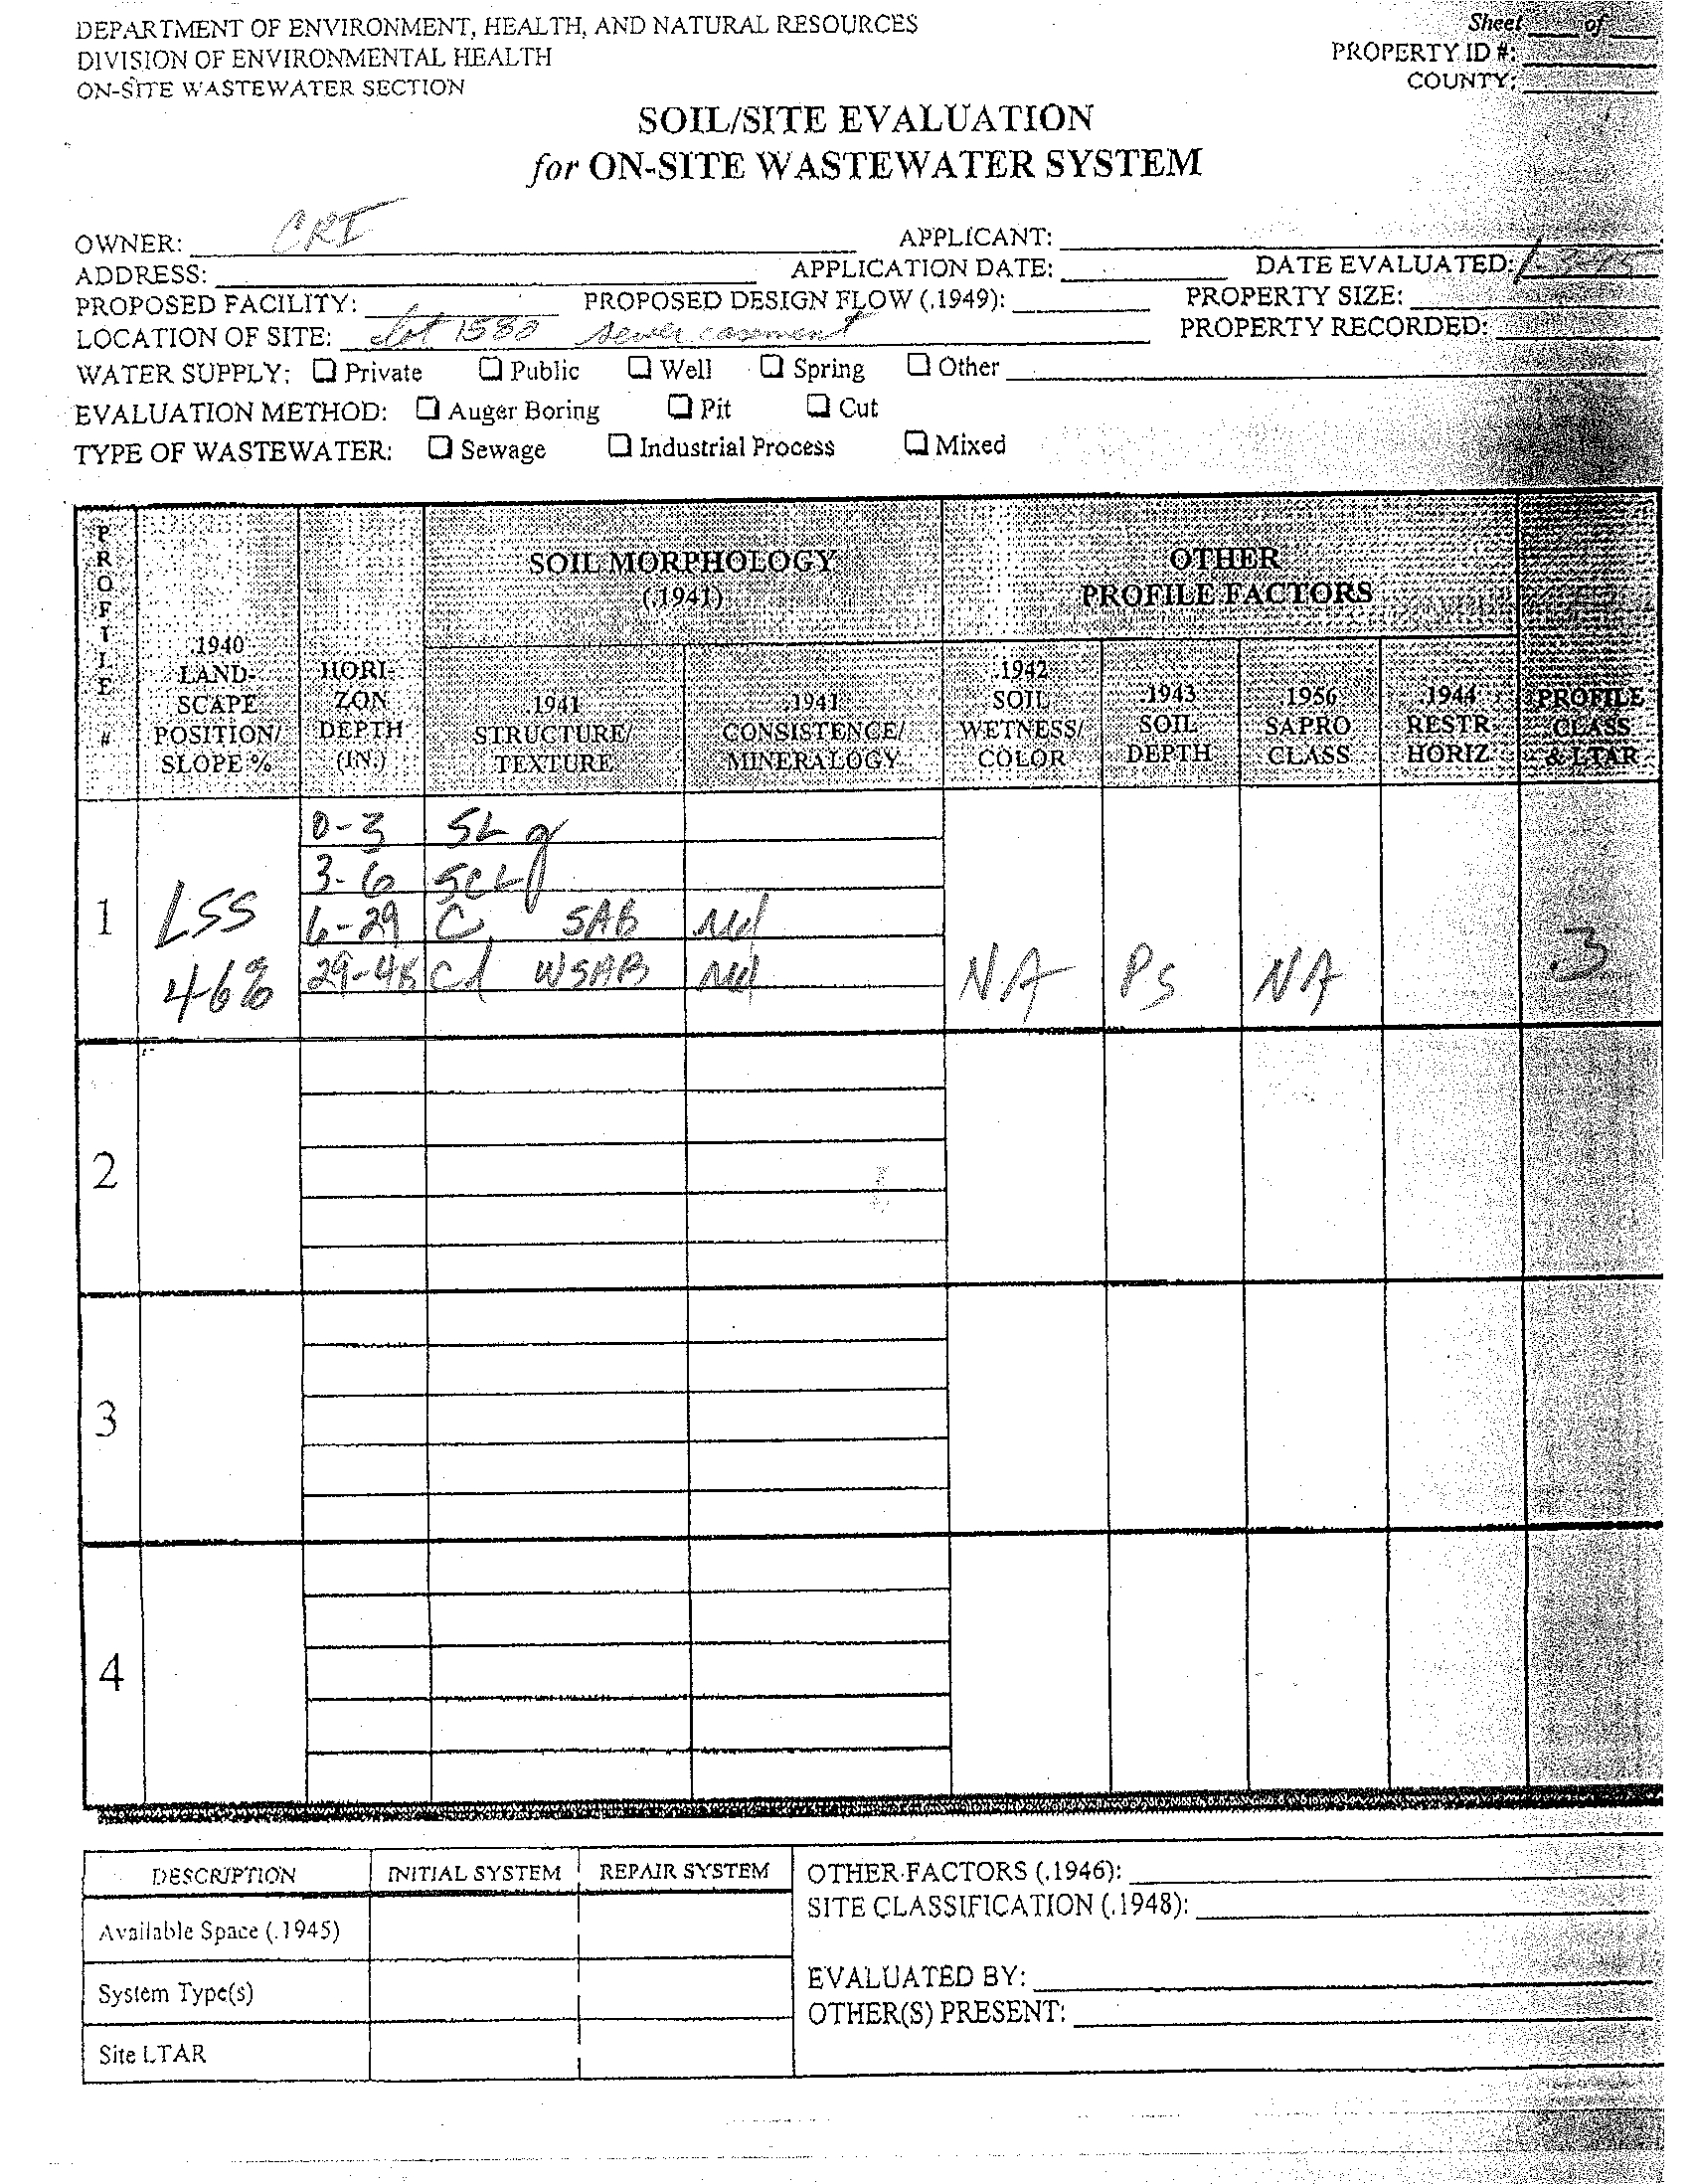 DEPARTMENT OF ENVIRONMENT, HEALTH, AND NATURAL RESOURCES
DIVISION OF ENVIRONMENTAL HEALTH
ON-SITE WASTEWATER SECTION
Sheet ____ of ____
PROPERTY ID #:
COUNTY:
SOIL/SITE EVALUATION
for ON-SITE WASTEWATER SYSTEM
OWNER: CRI APPLICANT:
ADDRESS: APPLICATION DATE: DATE EVALUATED:
PROPOSED FACILITY: PROPOSED DESIGN FLOW (.1949): PROPERTY SIZE:
LOCATION OF SITE: Lot 1580 sewer easement PROPERTY RECORDED:
WATER SUPPLY: ❑ Private ❑ Public ❑ Well ❑ Spring ❑ Other
EVALUATION METHOD: ❑ Auger Boring ❑ Pit ❑ Cut
TYPE OF WASTEWATER: ❑ Sewage ❑ Industrial Process ❑ Mixed
PROFILE #
.1940 LAND-SCAPE POSITION/ SLOPE %
HORI-ZON DEPTH (IN.)
SOIL MORPHOLOGY (.1941)
.1941 STRUCTURE/ TEXTURE
.1941 CONSISTENCE/ MINERALOGY
OTHER PROFILE FACTORS
.1942 SOIL WETNESS/ COLOR
.1943 SOIL DEPTH
.1956 SAPRO CLASS
.1944 RESTR HORIZ
PROFILE CLASS & LTAR
1 LSS 46%
0-3 SL g
3-6 SCL
6-29 C SAB
29-48 Cl WSAB
NA PS NA .3
2
3
4
DESCRIPTION INITIAL SYSTEM REPAIR SYSTEM
Available Space (.1945)
System Type(s)
Site LTAR
OTHER FACTORS (.1946):
SITE CLASSIFICATION (.1948):
EVALUATED BY:
OTHER(S) PRESENT: